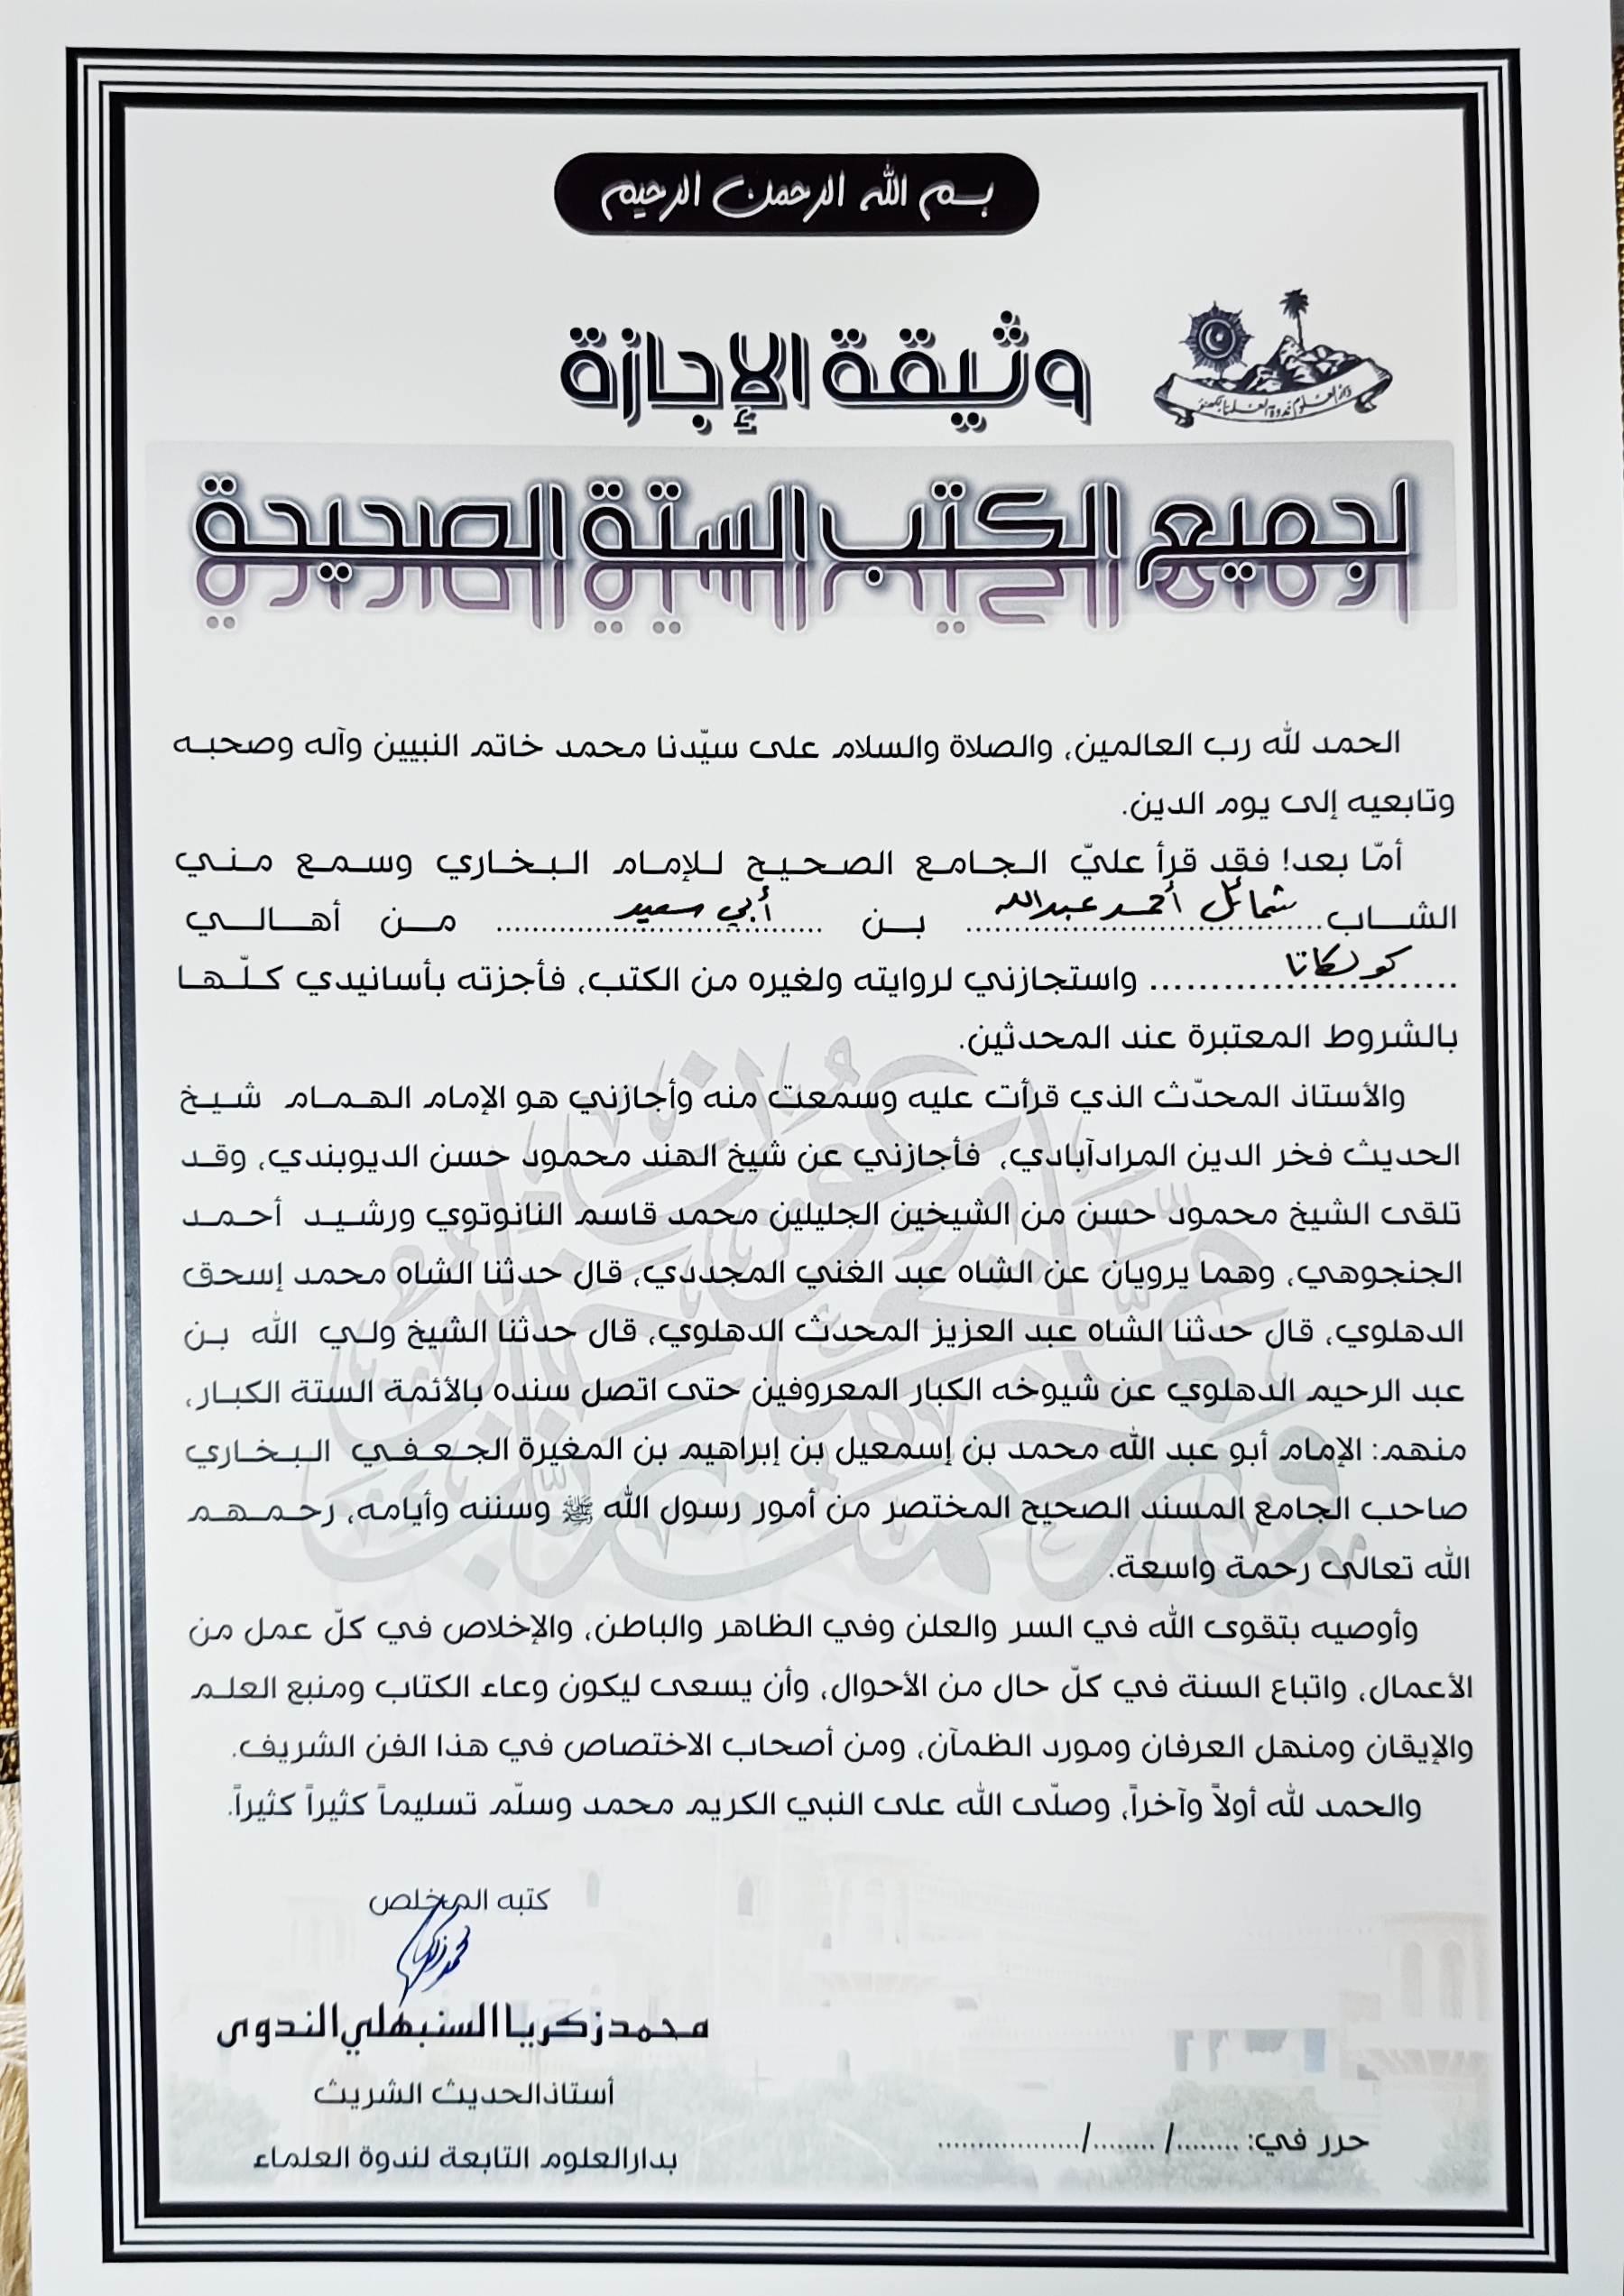 بسم الله الرحمن الرحيم
وثيقة الإجازة
دار العلوم ندوة العلماء لكهنؤ
لجميع الكتب الستة الصحيحة
الحمد لله رب العالمين، والصلاة والسلام على سيّدنا محمد خاتم النبيين وآله وصحبه
وتابعيه إلى يوم الدين.
أمّا بعد! فقد قرأ عليّ الجامع الصحيح للإمام البخاري وسمع مني
الشاب شمائل أحمد عبدالله بن أبي سعيد من أهالي
كولكاتا واستجازني لروايته ولغيره من الكتب، فأجزته بأسانيدي كلّها
بالشروط المعتبرة عند المحدثين.
والأستاذ المحدّث الذي قرأت عليه وسمعت منه وأجازني هو الإمام الهمام شيخ
الحديث فخر الدين المرادآبادي، فأجازني عن شيخ الهند محمود حسن الديوبندي، وقد
تلقى الشيخ محمود حسن من الشيخين الجليلين محمد قاسم النانوتوي ورشيد أحمد
الجنجوهي، وهما يرويان عن الشاه عبد الغني المجددي، قال حدثنا الشاه محمد إسحق
الدهلوي، قال حدثنا الشاه عبد العزيز المحدث الدهلوي، قال حدثنا الشيخ ولي الله بن
عبد الرحيم الدهلوي عن شيوخه الكبار المعروفين حتى اتصل سنده بالأئمة الستة الكبار،
منهم: الإمام أبو عبد الله محمد بن إسمعيل بن إبراهيم بن المغيرة الجعفي البخاري
صاحب الجامع المسند الصحيح المختصر من أمور رسول الله ﷺ وسننه وأيامه، رحمهم
الله تعالى رحمة واسعة.
وأوصيه بتقوى الله في السر والعلن وفي الظاهر والباطن، والإخلاص في كلّ عمل من
الأعمال، واتباع السنة في كلّ حال من الأحوال، وأن يسعى ليكون وعاء الكتاب ومنبع العلم
والإيقان ومنهل العرفان ومورد الظمآن، ومن أصحاب الاختصاص في هذا الفن الشريف.
والحمد لله أولاً وآخراً، وصلّى الله على النبي الكريم محمد وسلّم تسليماً كثيراً كثيراً.
كتبه المخلص
محمد زكريا
محمد زكريا السنبهلي الندوى
أستاذ الحديث الشريث
بدارالعلوم التابعة لندوة العلماء
حرر في: ......../ ......../..................